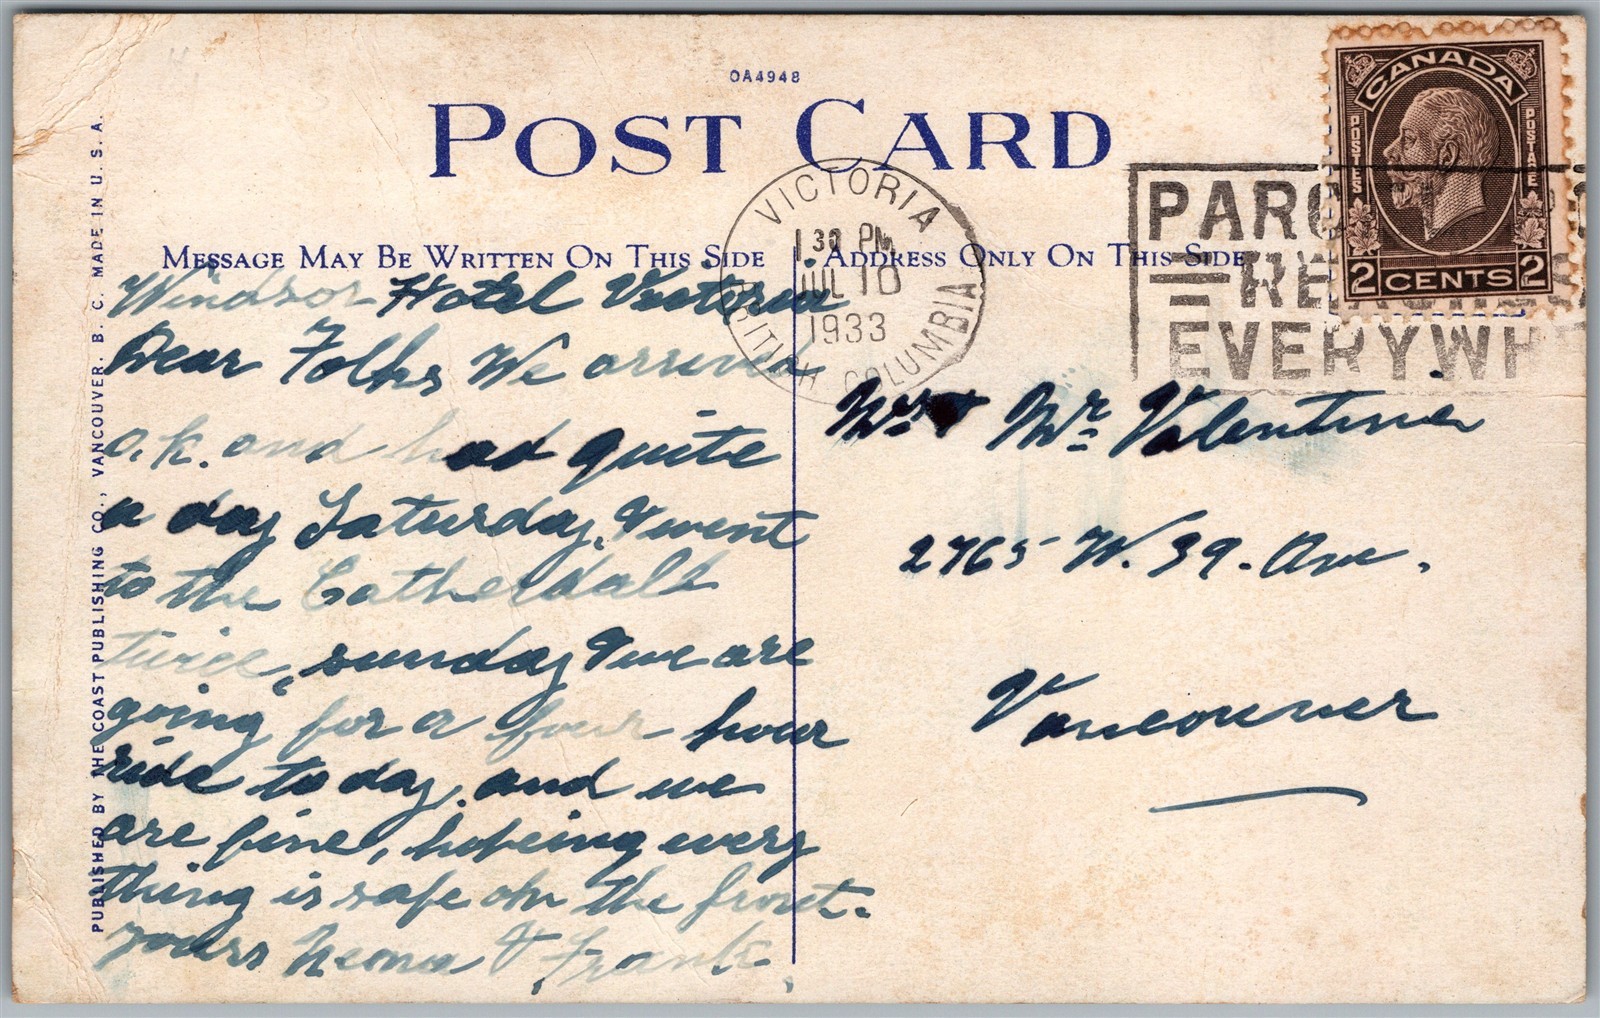 OA4948
POST CARD
CANADA
POSTES POSTAGE
2 CENTS 2
VICTORIA
1 30 PM
JUL 10
1933
BRITISH COLUMBIA
EVERYWH
MESSAGE MAY BE WRITTEN ON THIS SIDE
ADDRESS ONLY ON THIS SIDE
Windsor Hotel Victoria
Dear Folks We arrived
o.k. and had quite
a day Saturday, & went
to the Catherdall
twice, sunday & we are
going for a four hour
ride to day. and we
are fine, hopeing every
thing is safe on the front.
yours Neona & Frank
Mrs & Mr Valentine
2765 W. 39. Ave.
Vancouver
PUBLISHED BY THE COAST PUBLISHING CO., VANCOUVER, B. C. MADE IN U. S. A.